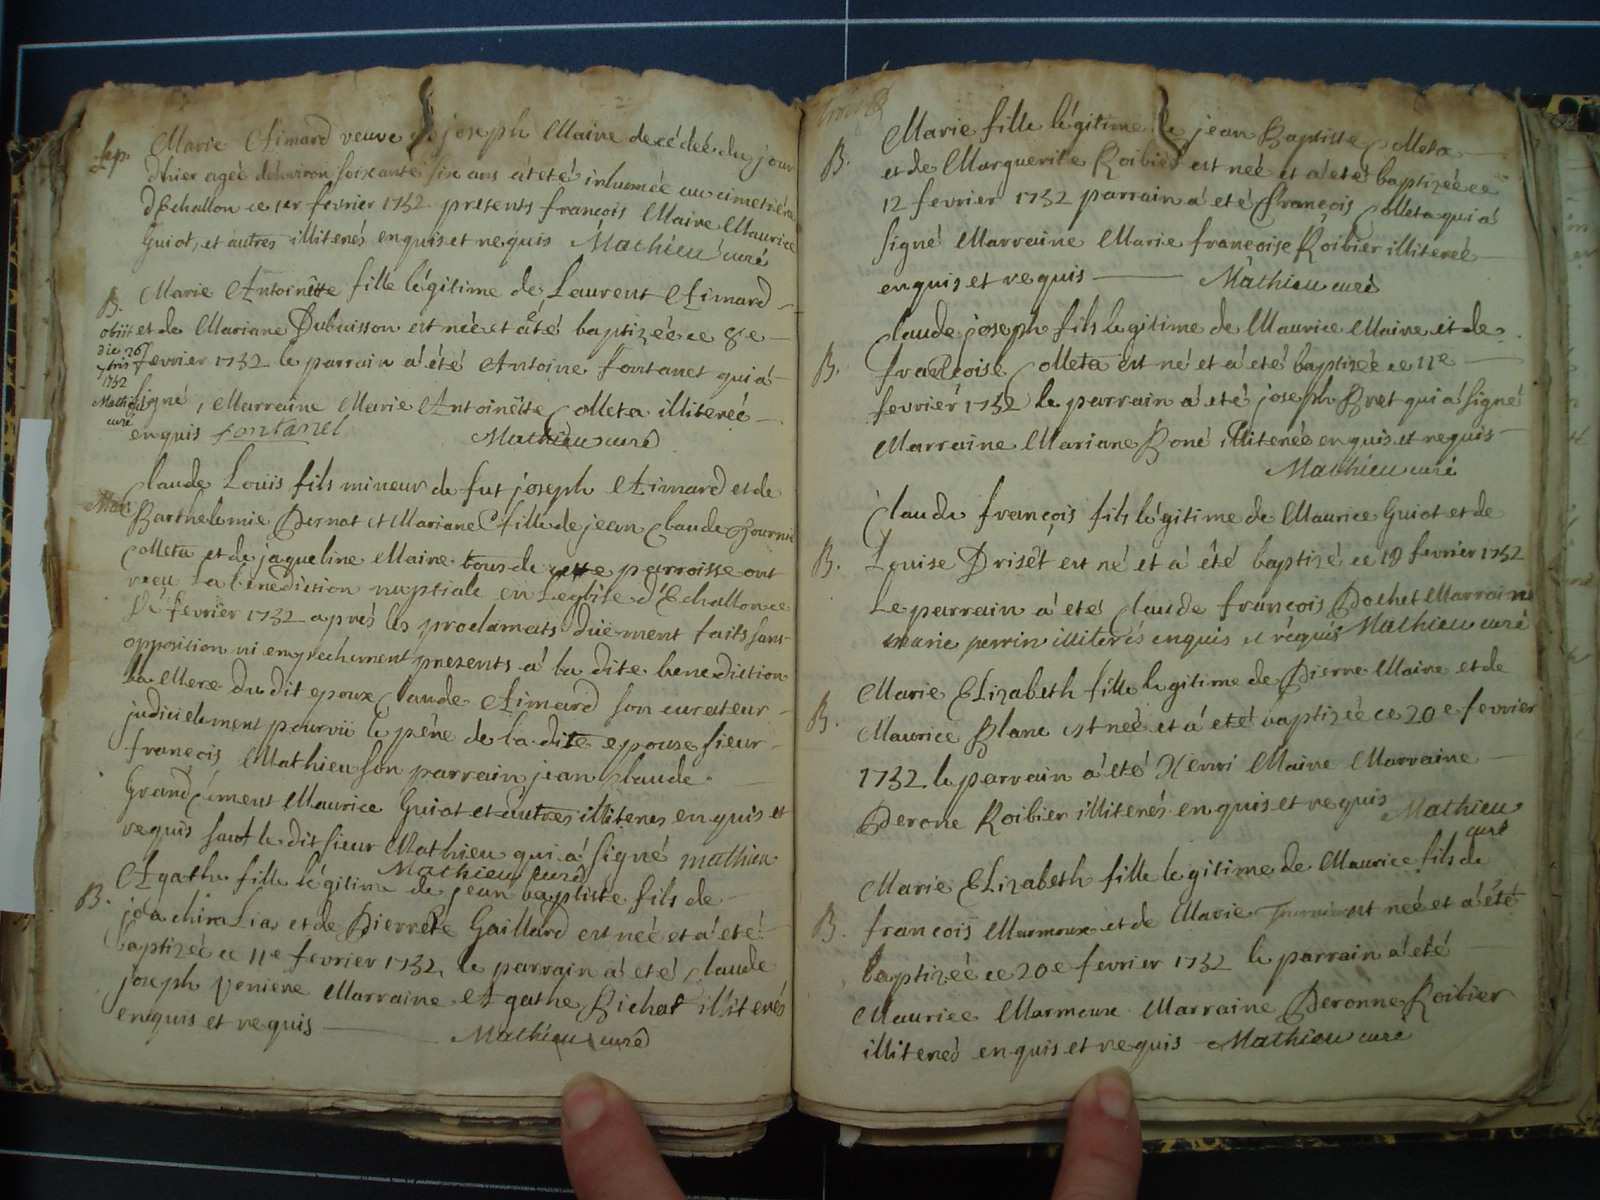 Sep. Marie Aimard veuve de joseph Maire decédée du jour
d'hier ageé d'environ soixante six ans a été inhumée au cimetiére
d'Echallon ce 1er fevrier 1732 presents françois Maire Maurice
Guiot, et autres illiterés enquis et requis Mathieu curé
B. Marie Antoinette fille légitime de Laurent Aimard
et de Mariane Dubuisson est neé et a été baptizéé ce 8e
fevrier 1732 le parrain á été Antoine fontanet qui á
signé, Marraine Marie Antoinette Colleta illitereé
enquis fontanel Mathieu curé
obiit
die 26
1732
Mathieu
curé
Claude Loüis fils mineur de fut joseph Aimard et de
Mar. Barthelemie Bernat et Mariane fille de jean Claude
Colleta et de jaqueline Maire tous de cette parroisse ont
reçu la bénédiction nuptiale en L'eglise d'Echallon ce
fevriër 1732 aprés les proclamats düement faits sans
opposition ni empechement presents á la dite benediction
la Mere du dit epoux Claude Aimard son curateur
judicielement pourvü le pére de la dite epouse sieur
françois Mathieu son parrain jean Claude
Grandclément Maurice Guiot et autres illiteres enquis et
requis sauf le dit sieur Mathieu qui á signé mathieu
Mathieu curé
B. Agathe fille légitime de jean baptiste fils de
joachim Lia, et de Pierrete Gaillard est neé et á été
baptizéé ce 11e fevrier 1732, le parrain á été Claude
joseph Marraine Agathe Richat illiterés
enquis et requis Mathieu curé
Marie fille légitime de jean Baptiste Colleta
B. et de Marguerite Roibier est née et á été baptizéé ce
12 fevrier 1732 parrain á eté François Colleta qui á
signé Marraine Marie françoise Roibier illitereé
enquis et requis Mathieu curé
Claude joseph fils legitime de Maurice Maire et de
B. françoise Colleta est né et á été baptizéé ce 11e
fevrier 1732 le parrain á eté joseph Bret qui á signé
Marraine Mariane Boné illitereé enquis et requis
Mathieu curé
Claude françois fils légitime de Maurice Guiot et de
B. Louise Driset est né et á été baptizé ce 18 fevrier 1732
Le parrain á eté Claude françois Bochet Marraine
marie perrin illiterés enquis et réquis Mathieu curé
Marie Elizabeth fille legitime de Pierre Maire et de
B. Maurice Blanc est neé et á eté baptizéé ce 20e fevrier
1732 le parrain á eté Henri Maire Marraine
Perone Roibier illiterés enquis et requis Mathieu
curé
Marie Elizabeth fille legitime de Maurice fils de
B. françois Marmoux et de Marie est neé et á été
baptizéé ce 20e fevrier 1732 le parrain á eté
Maurice Marmoux Marraine Peronne Roibier
illitereé enquis et requis Mathieu curé